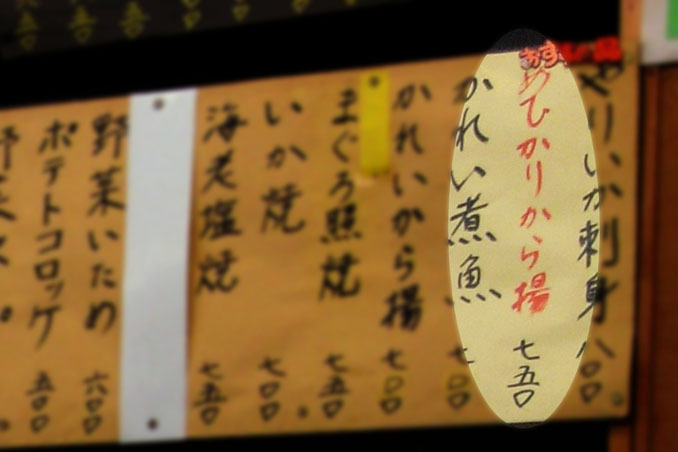 おすすめ品
やりいか刺身 八〇〇
めひかりから揚 七五〇
かれい煮魚 七〇〇
かれいから揚 七〇〇
まぐろ照焼 七五〇
いか焼 七〇〇
海老塩焼 七五〇
野菜いため 六〇〇
ポテトコロッケ 五〇〇